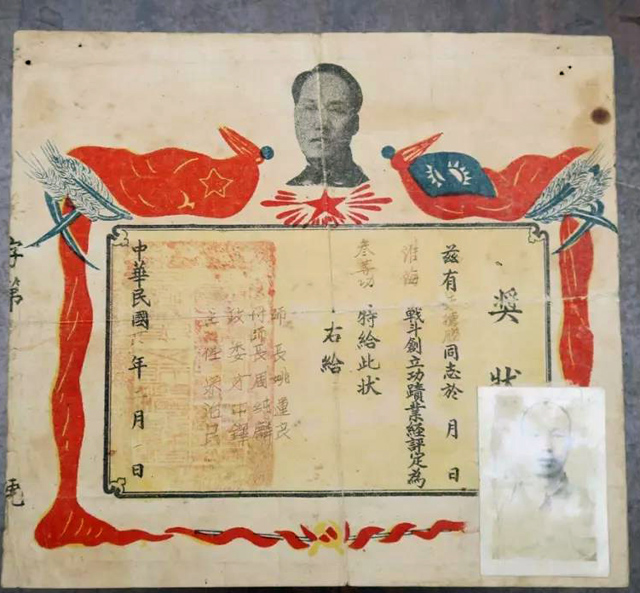 獎狀
兹有同志於 月 日
淮海 戰斗創立功蹟業經評定為
叁等功 特給此狀
右給
師長姚運良
付師長周純麟
政委方中鐸
主任
中華民國 年 月 日
字第 號